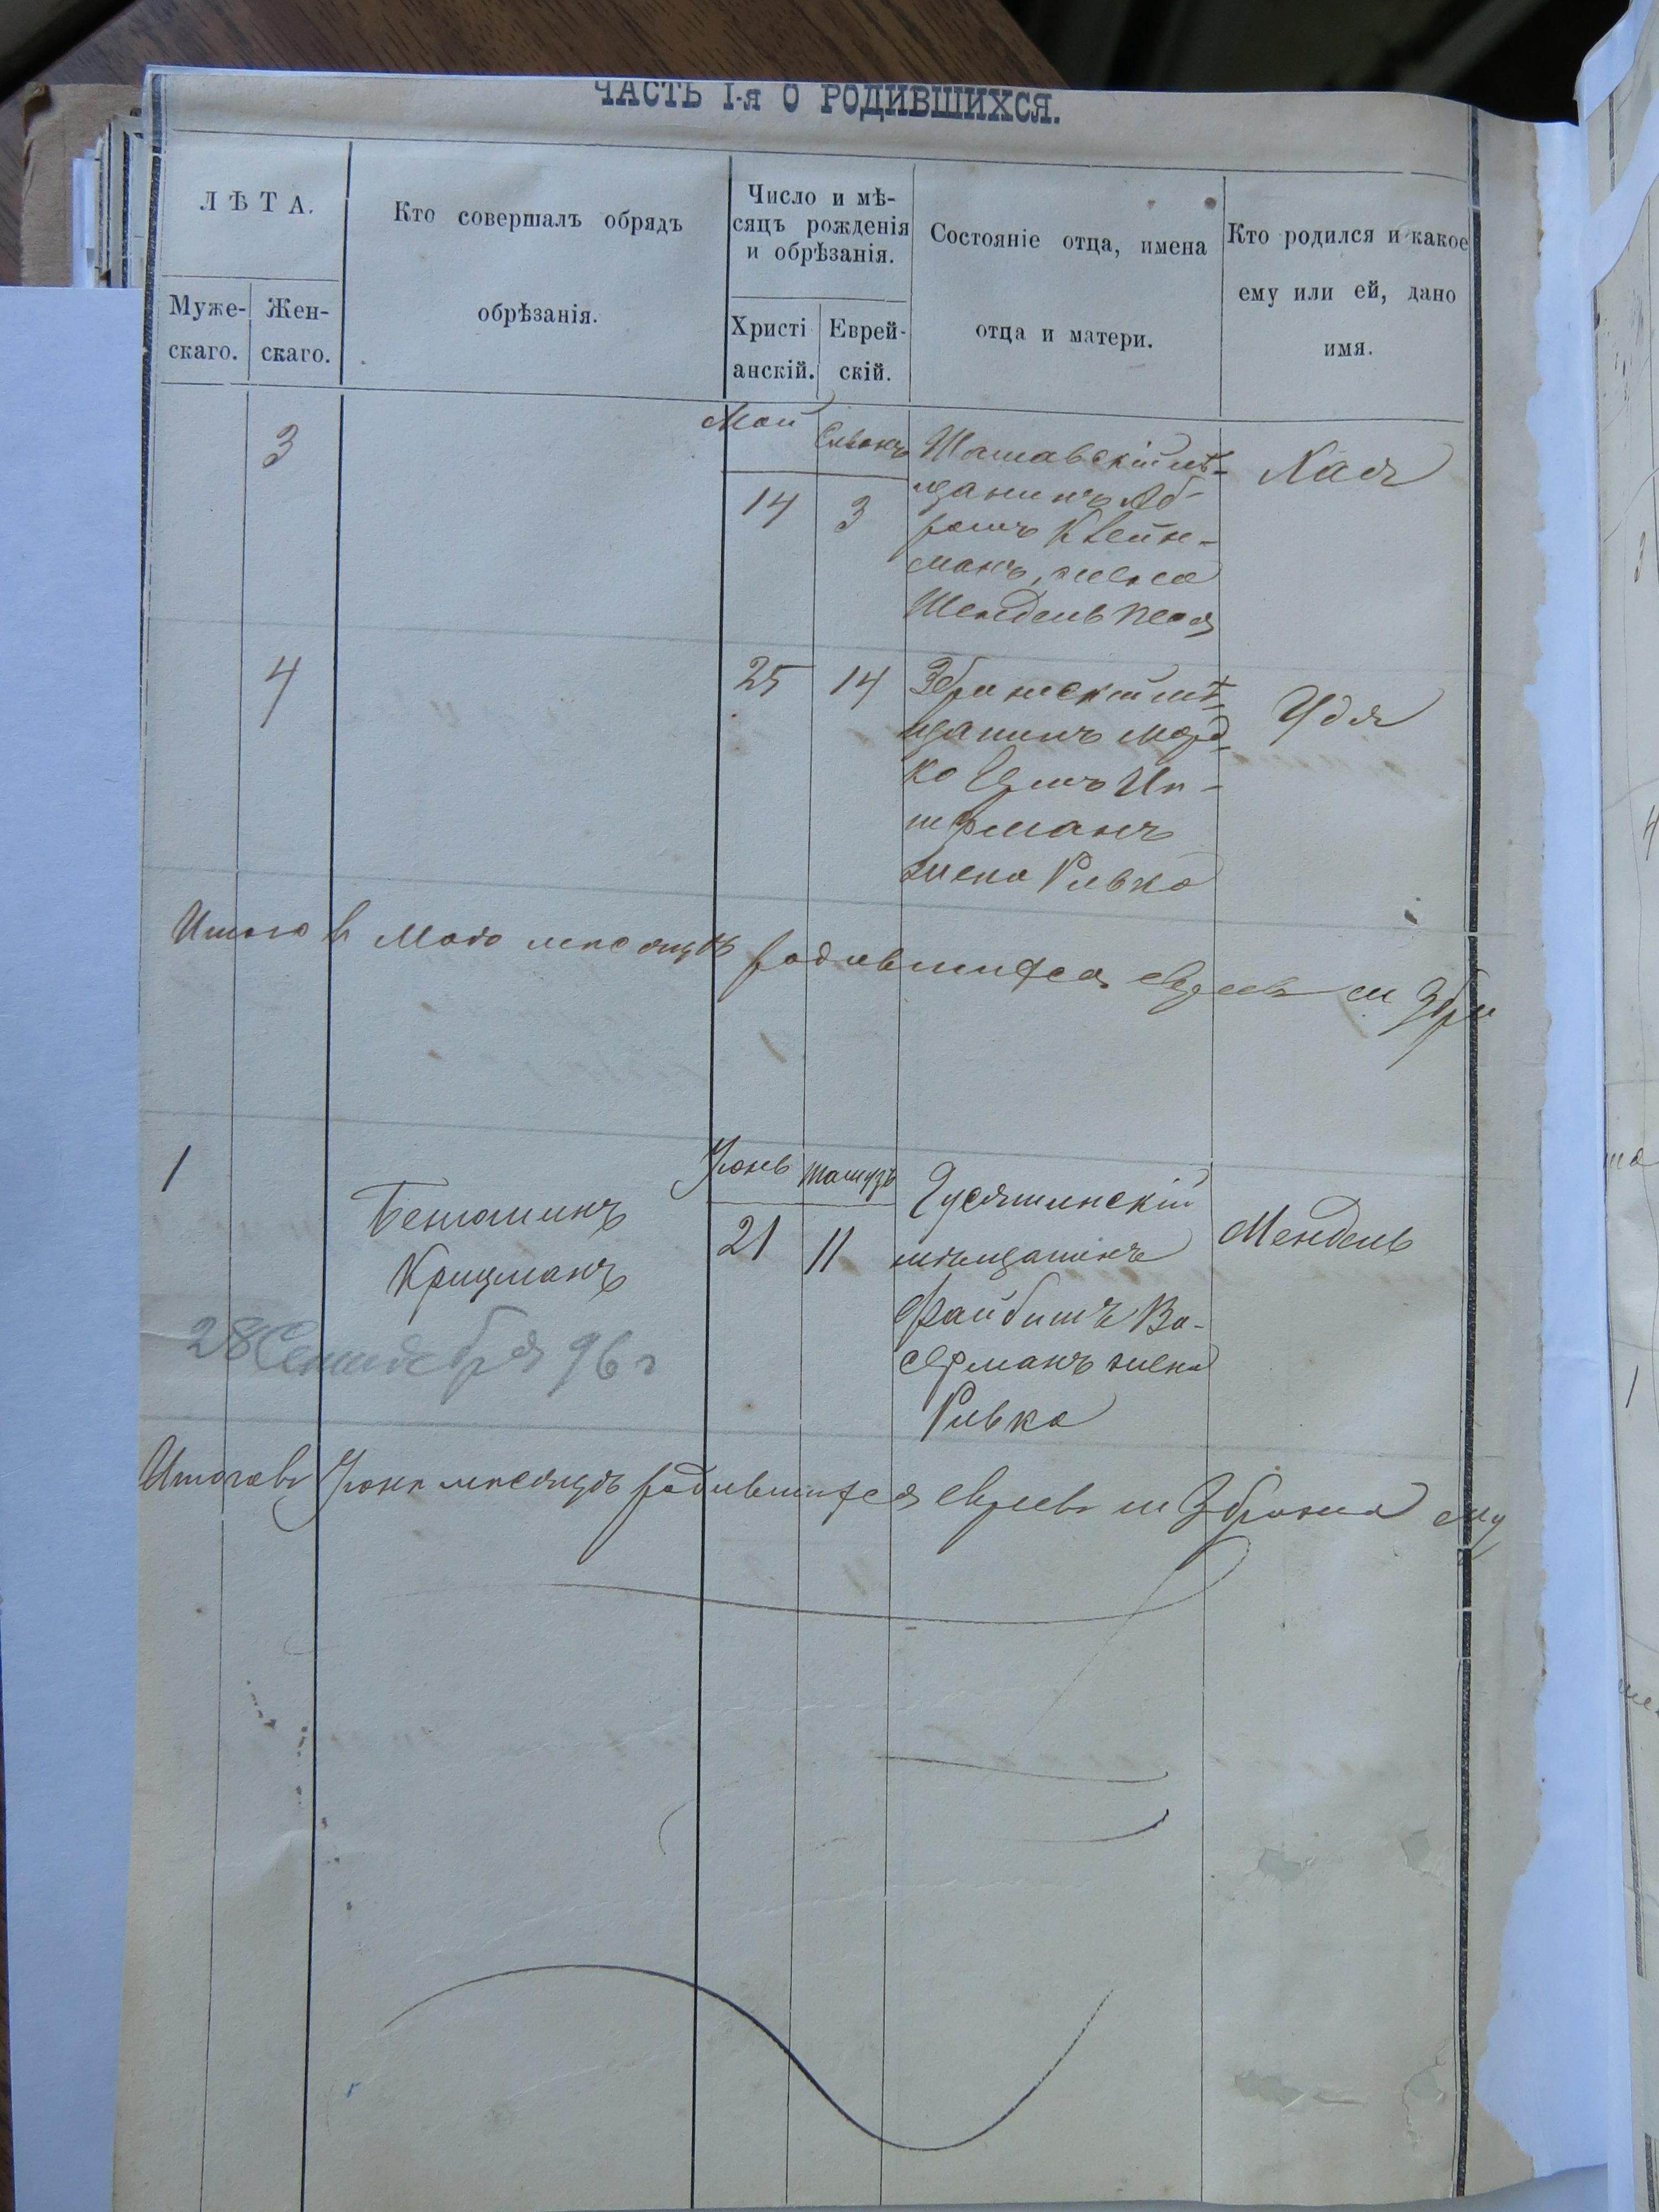 ЧАСТЬ I-я О РОДИВШИХСЯ.
ЛѢТА.
Муже-
скаго.
Жен-
скаго.
Кто совершалъ обрядъ
обрѣзанія.
Число и мѣ-
сяцъ рожденія
и обрѣзанія.
Христі
анскій.
Еврей-
скій.
Состояніе отца, имена
отца и матери.
Кто родился и какое
ему или ей, дано
имя.
3
Май
14
Сивонъ
3
Шатавскій мѣ-
щанинъ Аб-
рамъ Клейн-
манъ, жена
Шендель Песя
Хая
4
25
14
Збрижскій мѣ-
щанинъ Морд-
ко
манъ
жена Ривка
Удя
Итого в Маѣ месяцѣ родившихся евреев м Збри
1
Бениаминъ
Крицманъ
28 Сентября 96 г
Іюнь
21
Тамузъ
11
Гусятинскій
мѣщанинъ
Файбишъ Ва-
серманъ жена
Ривка
Мендель
Итого в Іюнѣ месяцѣ родившихся евреев м Збрижа